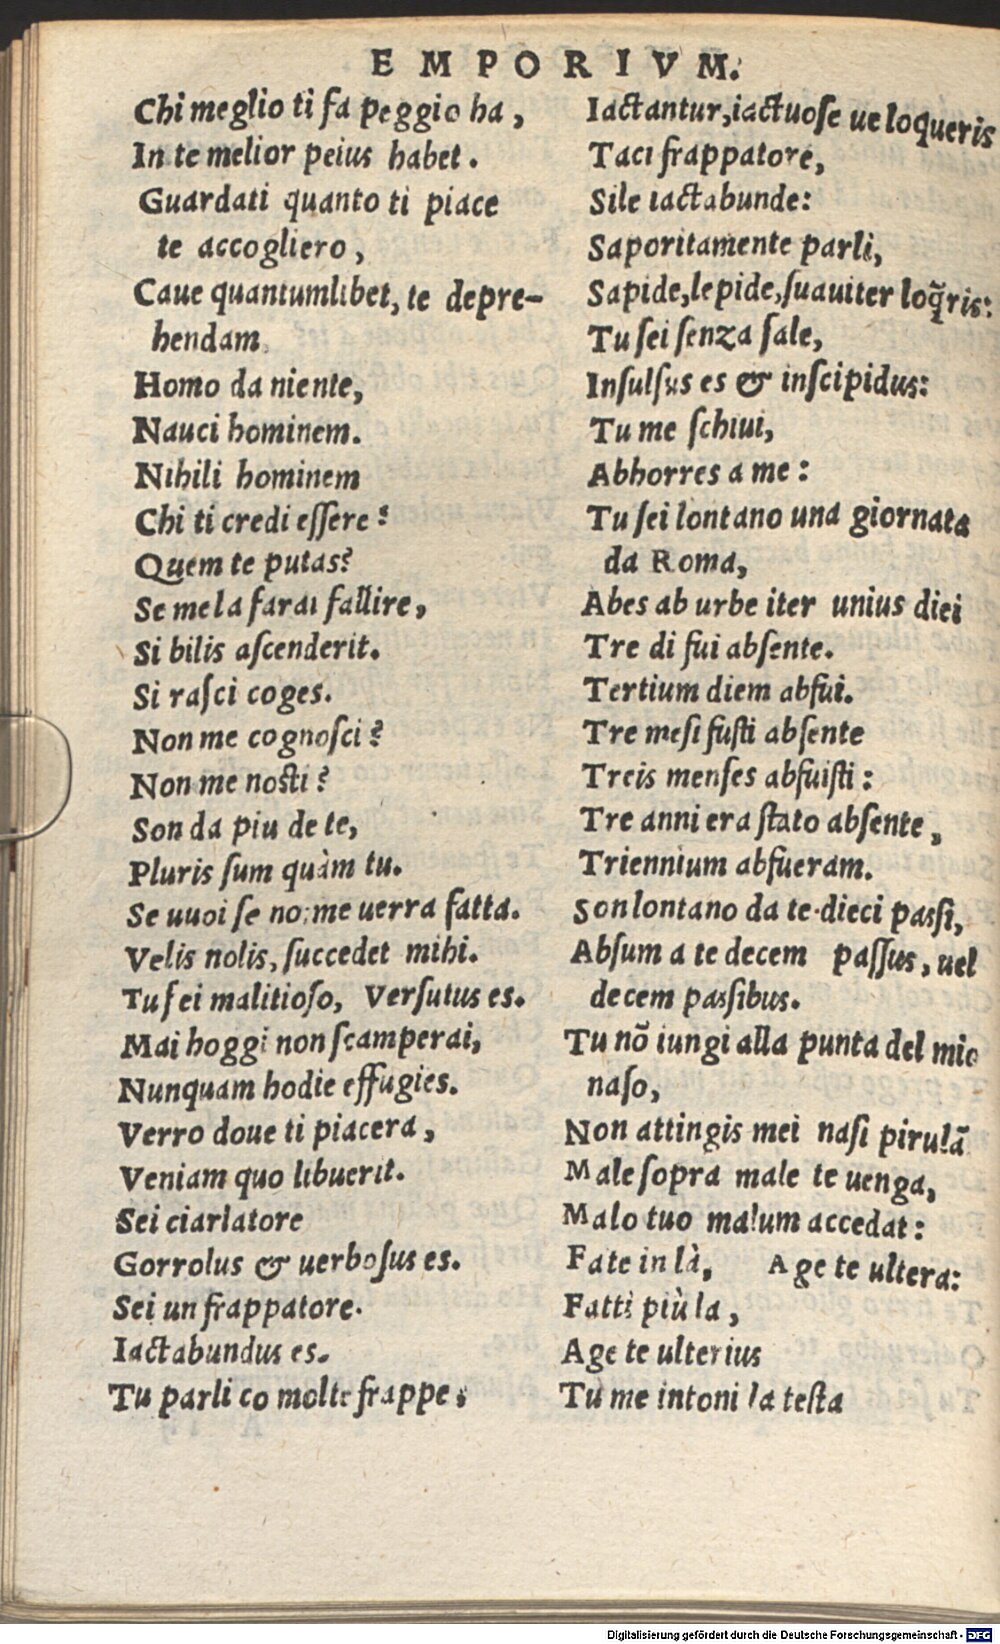 EMPORIVM.
Chi meglio ti fa peggio ha,
In te melior peius habet.
Guardati quanto ti piace
te accogliero,
Caue quantumlibet, te depre-
hendam.
Homo da niente,
Nauci hominem.
Nihili hominem
Chi ti credi eſſere?
Quem te putas?
Se me la farai fallire,
Si bilis aſcenderit.
Si raſci coges.
Non me cognoſci?
Non me noſti?
Son da piu de te,
Pluris ſum quàm tu.
Se uuoi ſe no, me uerra fatta.
Velis nolis, ſuccedet mihi.
Tu ſei malitioſo, Verſutus es.
Mai hoggi non ſcamperai,
Nunquam hodie effugies.
Verro doue ti piacera,
Veniam quo libuerit.
Sei ciarlatore
Gorrolus & uerboſus es.
Sei un frappatore.
Iactabundus es.
Tu parli co molte frappe,
Iactantur, iactuoſe ue loqueris
Taci frappatore,
Sile iactabunde:
Saporitamente parli,
Sapide, lepide, ſuauiter loq̃ris:
Tu ſei ſenza ſale,
Inſulſus es & inſcipidus:
Tu me ſchiui,
Abhorres a me:
Tu ſei lontano una giornata
da Roma,
Abes ab urbe iter unius diei
Tre di fui abſente.
Tertium diem abfui.
Tre meſi fuſti abſente
Treis menſes abfuiſti:
Tre anni era ſtato abſente,
Triennium abfueram.
Son lontano da te dieci paſſi,
Abſum a te decem paſſus, uel
decem paſſibus.
Tu nõ iungi alla punta del mio
naſo,
Non attingis mei naſi pirulã
Male ſopra male te uenga,
Malo tuo malum accedat:
Fate in là, Age te ultera:
Fatti più la,
Age te ulterius
Tu me intoni la teſta
Digitalisierung gefördert durch die Deutsche Forschungsgemeinschaft - DFG